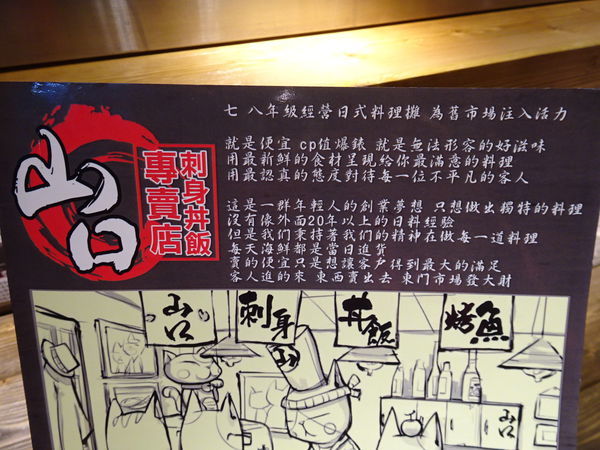 七 八年級經營日式料理攤 為舊市場注入活力
山口
刺身丼飯
專賣店
就是便宜 cp值爆錶 就是無法形容的好滋味
用最新鮮的食材呈現給你最滿意的料理
用最認真的態度對待每一位不平凡的客人
這是一群年輕人的創業夢想 只想做出獨特的料理
沒有像外面20年以上的日料經驗
但是我們秉持著我們的精神在做每一道料理
每天海鮮都是當日進貨
賣的便宜只是想讓客戶得到最大的滿足
客人進的來 東西賣出去 東門市場發大財
山口
刺身
丼飯
烤魚
山
山口